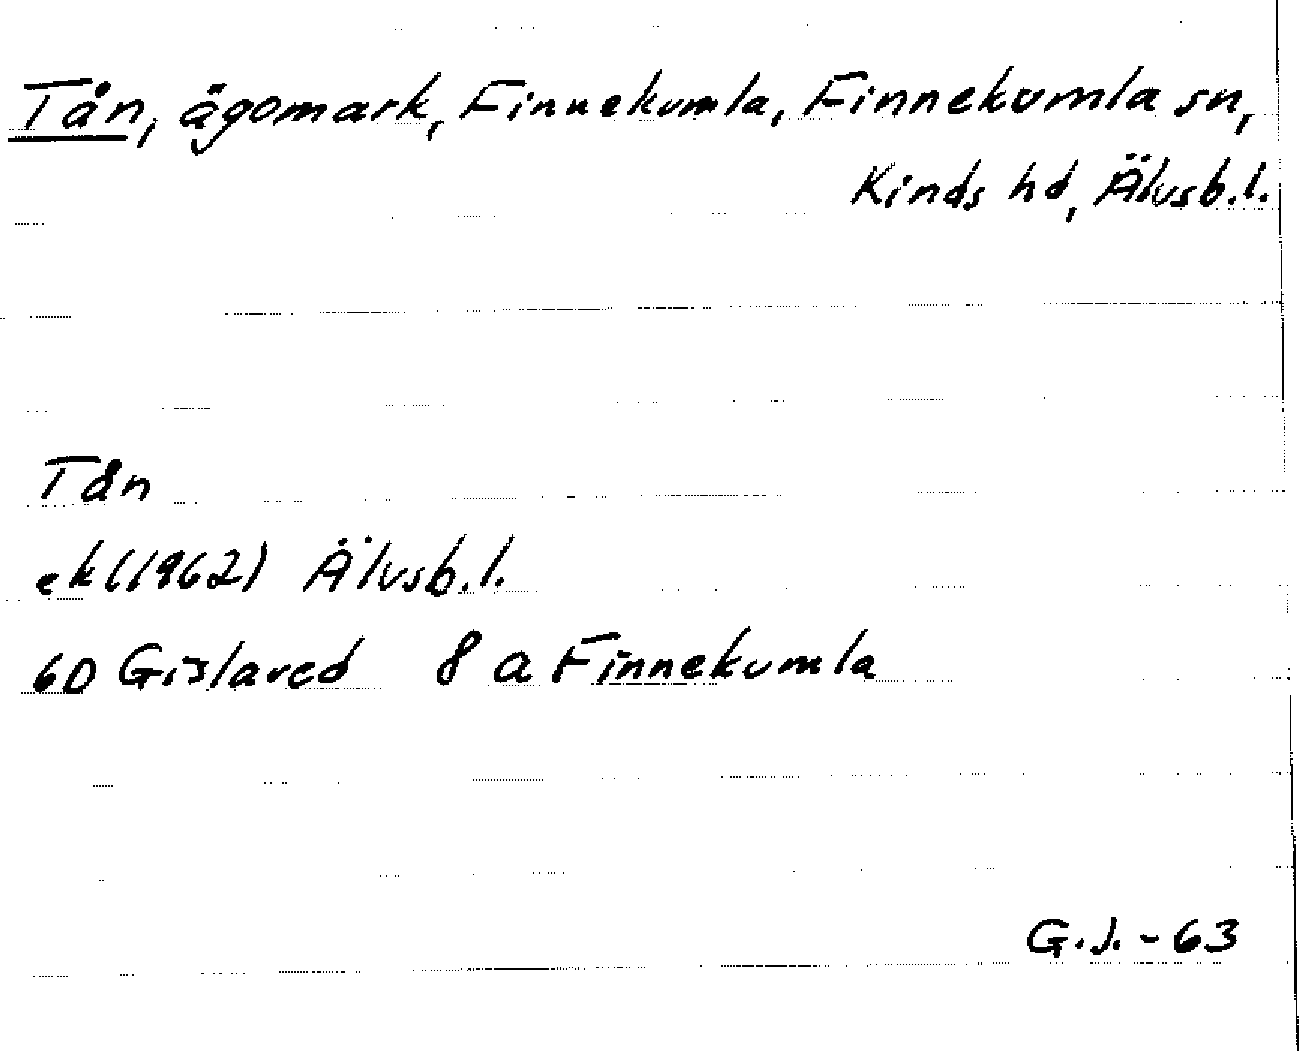 Tån, ägomark, Finnekumla, Finnekumla sn,
Kinds hd, Älvsb.l.
Tån
ek (1962) Älvsb.l.
6D Gislaved 8 a Finnekumla
G.J.-63